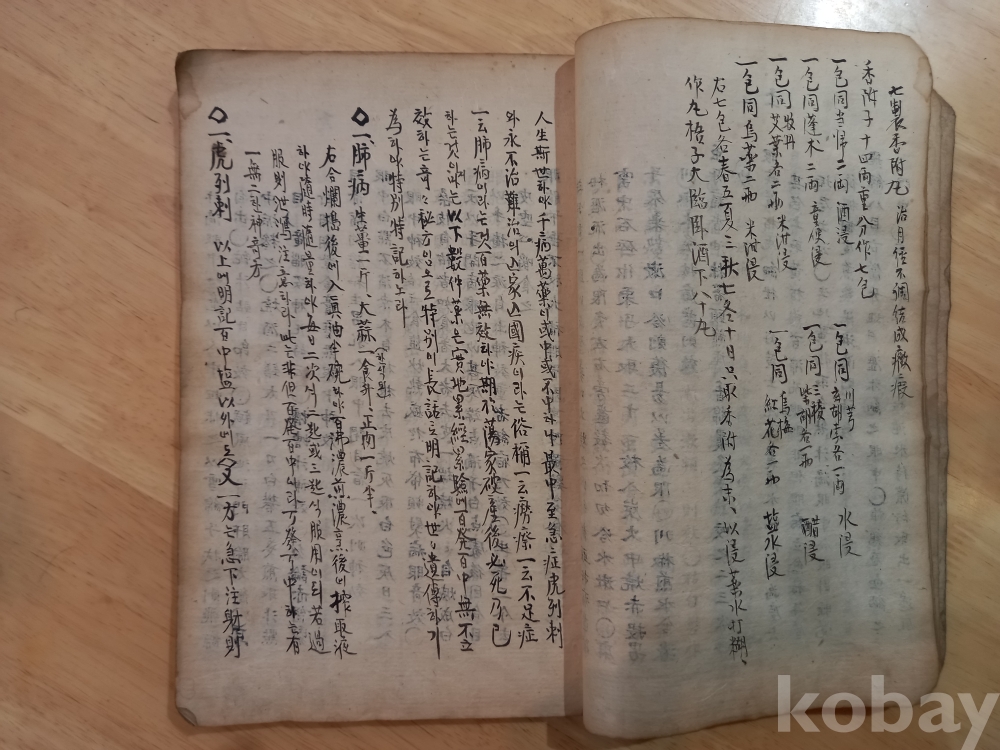 七製香附丸 治月経不調結成癥瘕
香附子十四両重分作七包
一包同当帰二両 酒浸
一包同蓬朮二両 童便浸
一包同牧丹艾葉各二両 米泔浸
一包同烏薬二両 米泔浸
一包同川芎玄胡索各一両 水浸
一包同三稜柴胡各一両 醋浸
一包同烏梅紅花各一両 塩水浸
右七包各春五夏三秋七冬十日只取香附為末以浸薬水打糊
作丸梧子大臨臥酒下八十丸
人生斯世하야千病萬薬이或中或不中하나最中至急症虎列剌
와永不治難治의亡家亡國疾이라는俗稱一云癆瘵一云不足症
一云肺病이라는것百薬無效하야期於蕩家破産後必死乃已
하는것이기에以下數件薬은實地累經累驗에百発百中無不立
效하는竒々秘方임으로特別이長誌之明記하야世々遺傳하기
為하야特別特記하노라
◇一肺病 生薑一斤、大蒜一食升、正肉一斤半、
右合爛搗後에入真油半碗하야百沸濃煎濃烹後에搾取液
하야隨時適量하야每日二次式一匙或三匙式服用이되若過
服則泄瀉注意하라此는非但百發百中이라丁發丁中하는
一無二한神竒方
◇一虎列剌 以上에明記百中塩以外에又一方는急下注射則
kobay